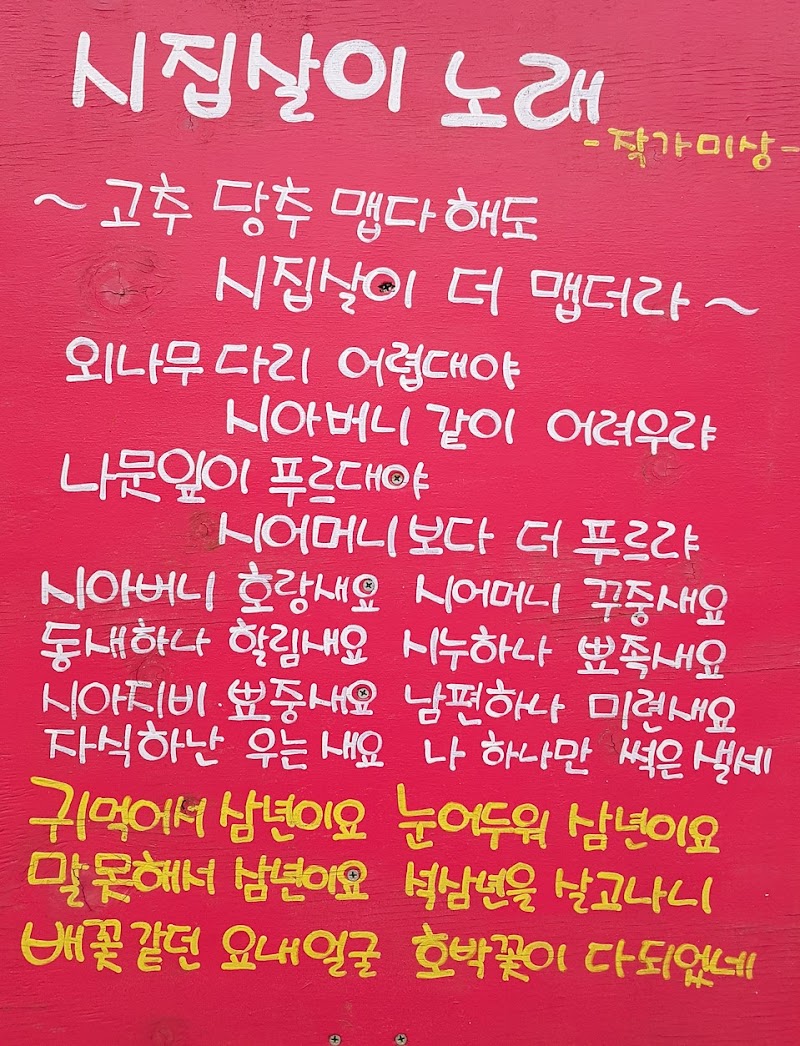 시집살이 노래
-작가미상-
~ 고추 당추 맵다 해도
시집살이 더 맵더라 ~
외나무 다리 어렵대야
시아버니 같이 어려우랴
나뭇잎이 푸르대야
시어머니보다 더 푸르랴
시아버니 호랑새요 시어머니 꾸중새요
동새하나 할림새요 시누하나 뾰족새요
시아지비 뾰중새요 남편하나 미련새요
자식하난 우는 새요 나 하나만 썩은 샐세
귀먹어서 삼년이요 눈어두워 삼년이요
말못해서 삼년이요 석삼년을 살고나니
배꽃같던 요내얼굴 호박꽃이 다되었네